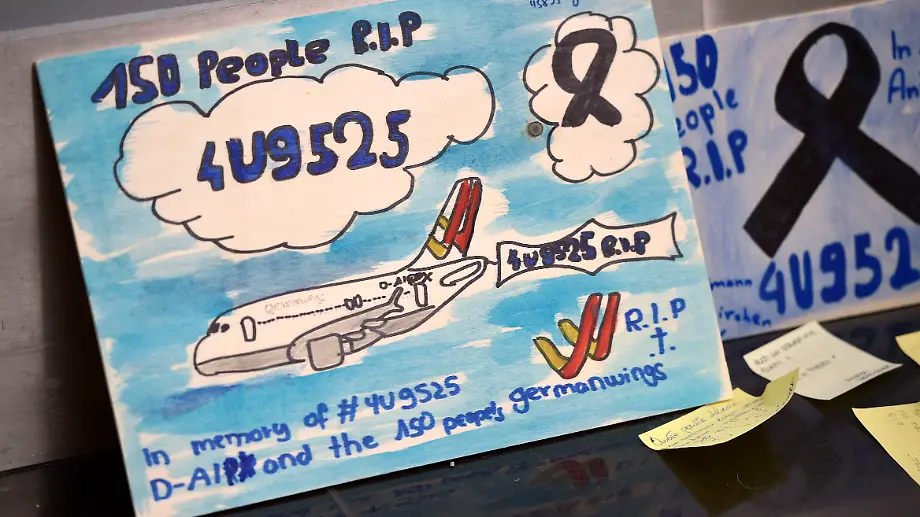 150 People R.I.P
4U9525
D-AIPX
germanwings
4U9525 R.I.P
R.I.P
In memory of #4U9525
D-AIPX and the 150 people's germanwings
150
eople
R.I.P
In
An
4U952
mann
irchen